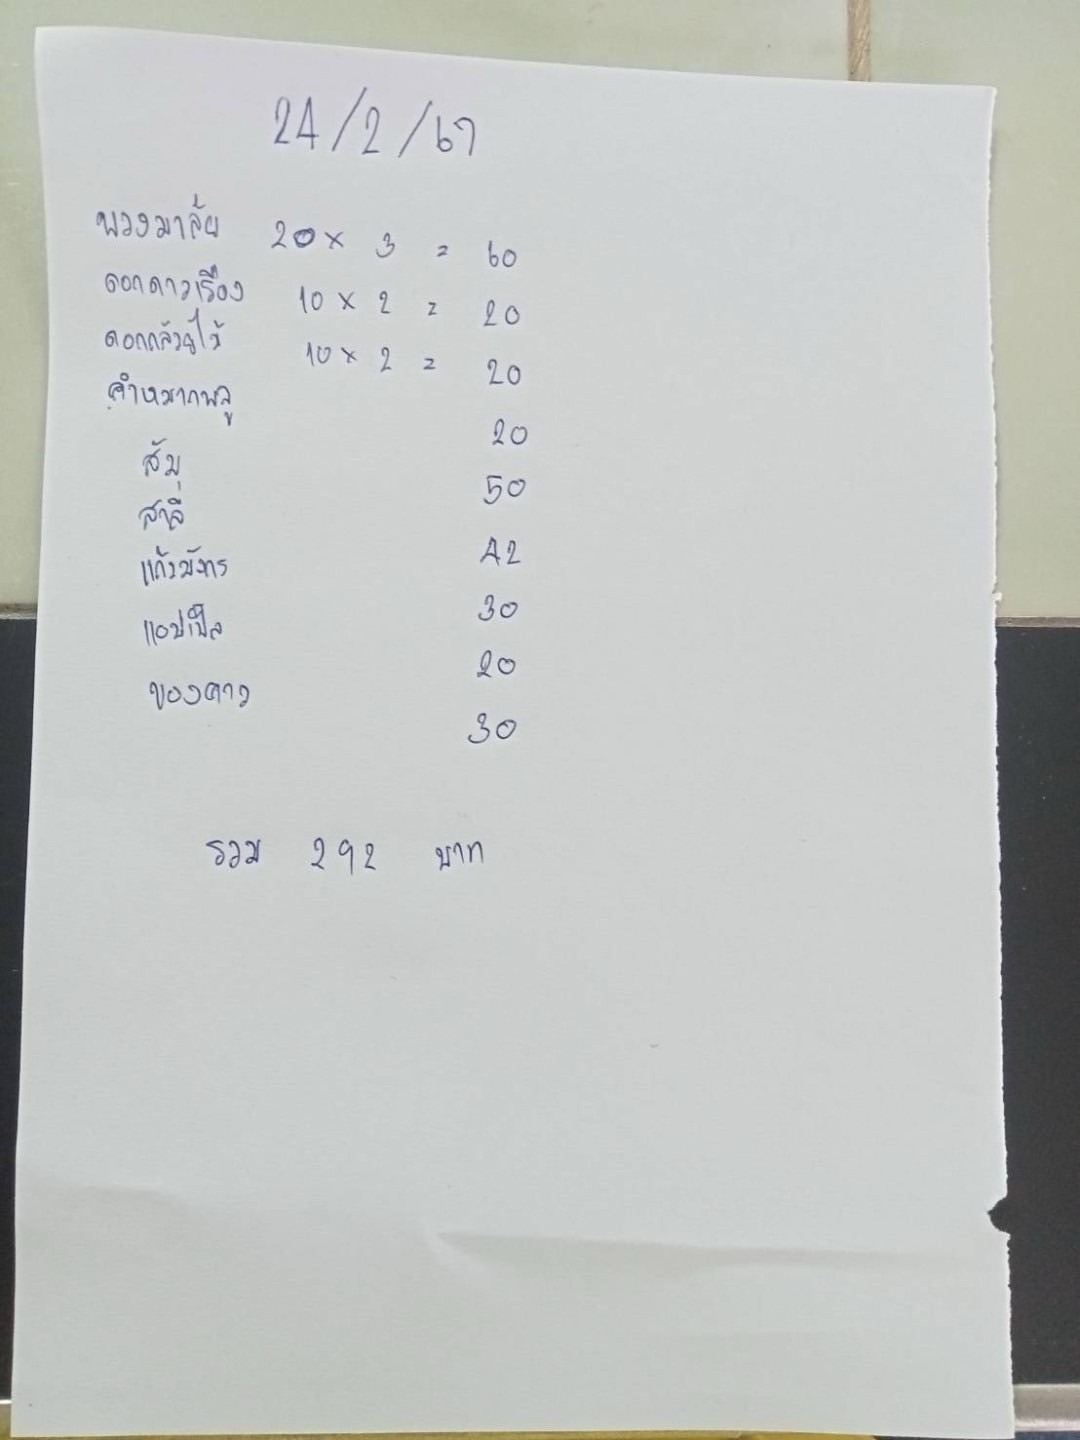 24/2/67
พวงมาลัย 20 x 3 = 60
ดอกดาวเรือง 10 x 2 = 20
ดอกกล้วยไม้ 10 x 2 = 20
คำหมากพลู 20
ส้ม 50
สาลี่ 42
แก้วมังกร 30
แอปเปิ้ล 20
ของคาว 30
รวม 292 บาท